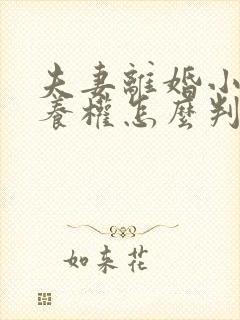 夫妻離婚小
養權怎麼判
如来花